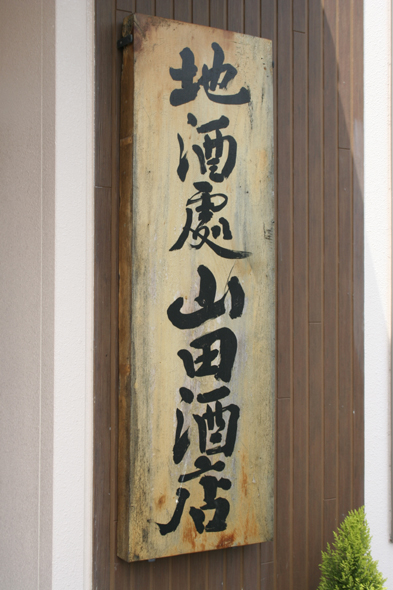 地酒處山田酒店